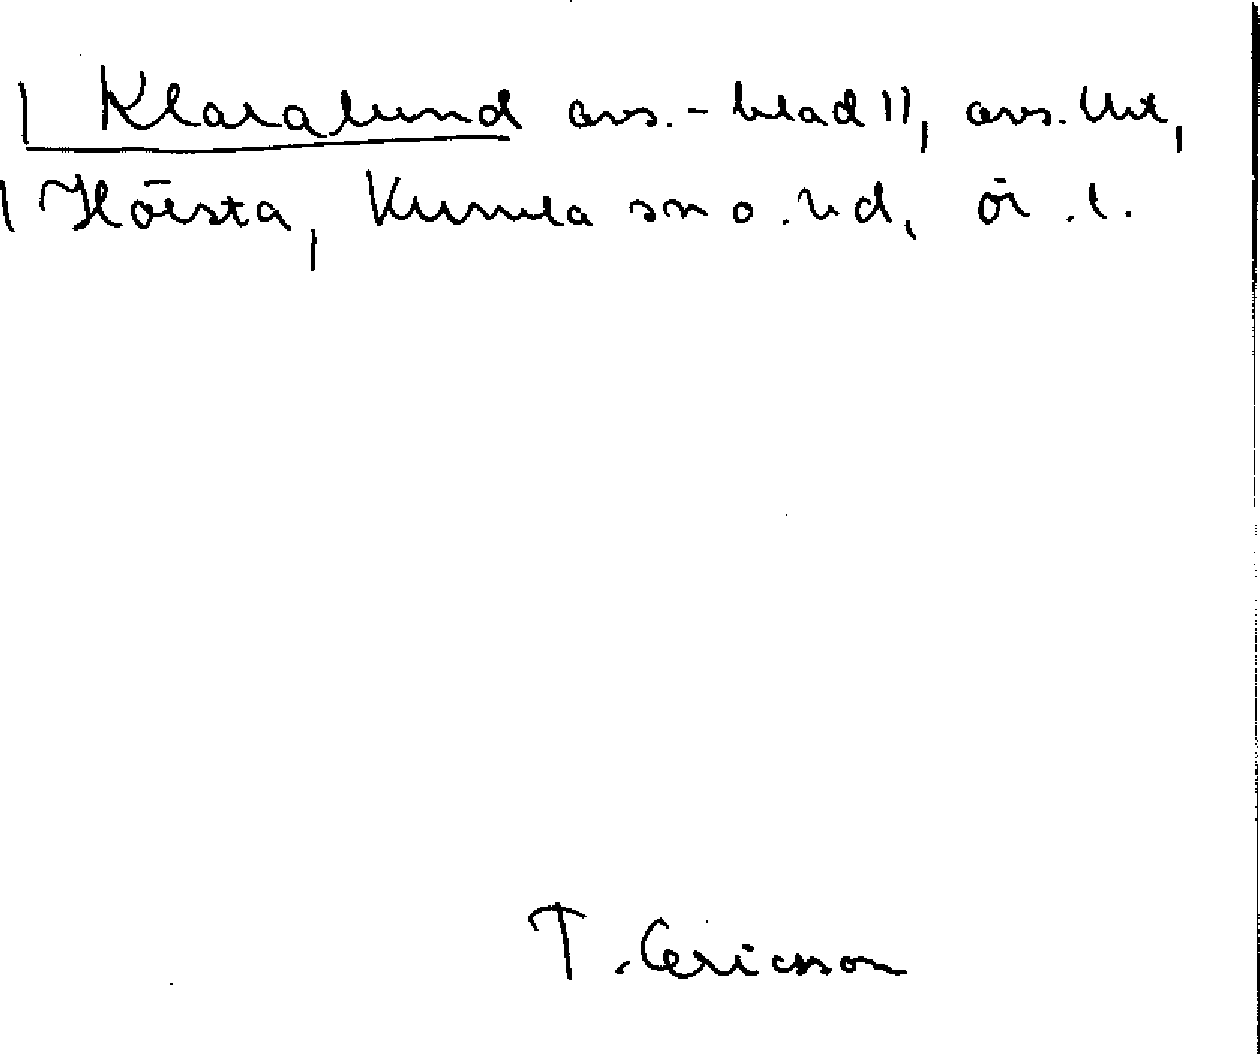 Klaralund avs.-blad 11, avs. Ut,
Hörsta, Kumla sn o. hd, ör. l.
T. Ericsson